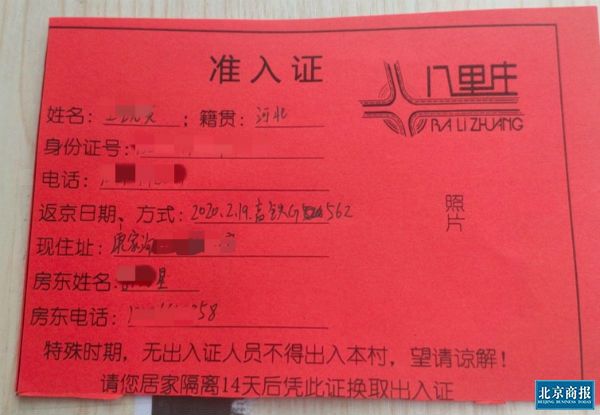 准入证
八里庄
BALIZHUANG
姓名：；籍贯：河北
身份证号：
电话：
返京日期、方式：2020.2.19.高铁G562
现住址：康家沟
房东姓名：星
房东电话：58
照片
特殊时期，无出入证人员不得出入本村，望请谅解！
请您居家隔离14天后凭此证换取出入证
北京商报
BEIJING BUSINESS TODAY